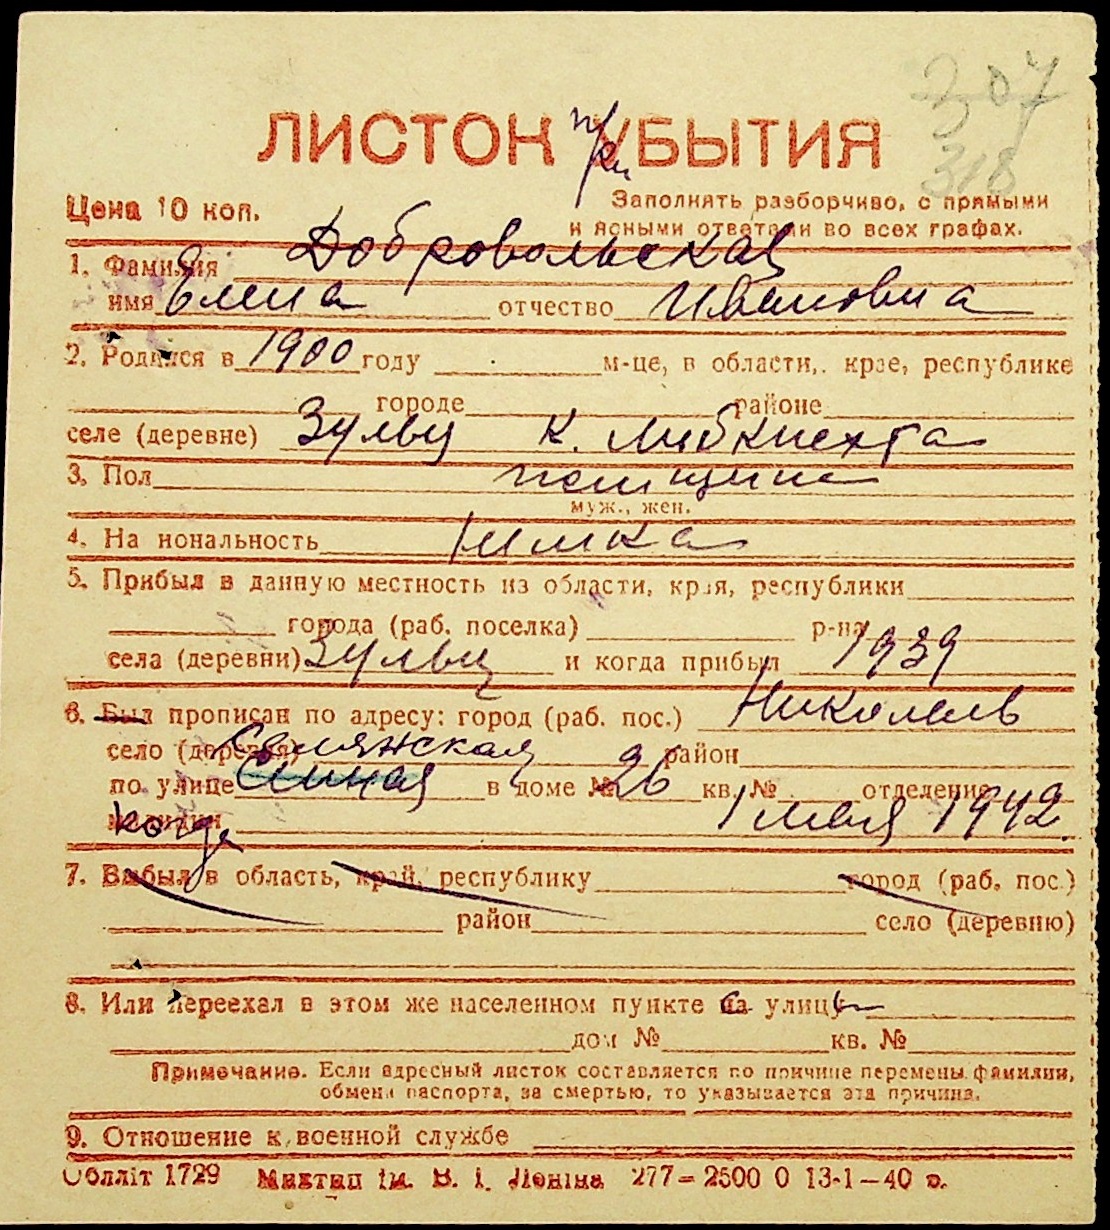 307
318
ЛИСТОК УБЫТИЯ
Цена 10 коп.
Заполнять разборчиво, с прямыми
и ясными ответами во всех графах.
1. Фамилия Добровольская
имя Елена отчество Ивановна
2. Родился в 1900 году м-це, в области, крае, республике
городе районе
селе (деревне) Зульц К. Либкнехта
3. Пол женщина
муж., жен.
4. На иональность Немка
5. Прибыл в данную местность из области, края, республики
города (раб. поселка) р-на
села (деревни) Зульц и когда прибыл 1939
6. Был прописан по адресу: город (раб. пос.) Николаев
село (деревня) район
по улице Сенная в доме № 26 кв. № отделение
милиции когда 1 мая 1942
7. Выбыл в область, край, республику город (раб. пос.)
район село (деревню)
8. Или переехал в этом же населенном пункте на улицу
дом № кв. №
Примечание. Если адресный листок составляется по причине перемены фамилии,
обмена паспорта, за смертью, то указывается эта причина.
9. Отношение к военной службе
Облліт 1729 Миктип ім. В. І. Леніна 277—2500 0 13-1—40 р.